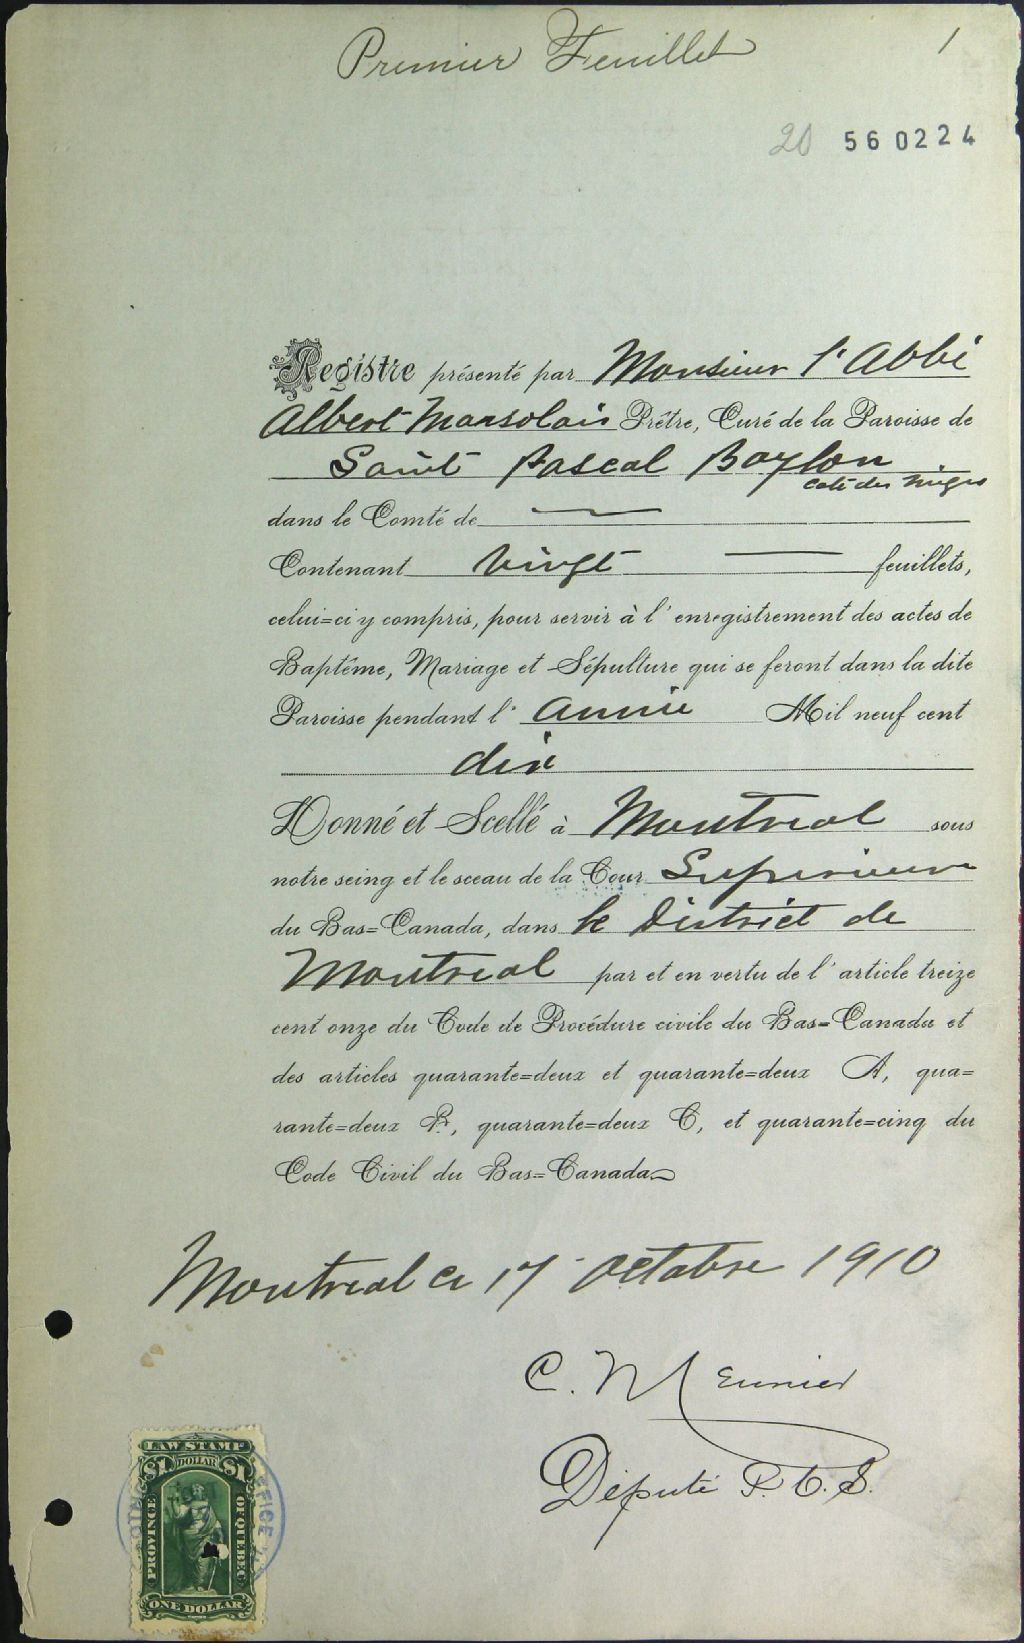 Premier Feuillet 1
20 560224
Registre présenté par Monsieur l'Abbé
Albert Marsolais Prêtre, Curé de la Paroisse de
Saint Pascal Baylon
Cote des Neiges
dans le Comté de
Contenant vingt feuillets,
celui=ci y compris, pour servir à l'enregistrement des actes de
Baptême, Mariage et Sépulture qui se feront dans la dite
Paroisse pendant l'année Mil neuf cent
dix
Donné et Scellé à Montreal sous
notre seing et le sceau de la Cour Superieure
du Bas=Canada, dans le District de
Montreal par et en vertu de l'article treize
cent onze du Code de Procédure civile du Bas=Canada et
des articles quarante=deux et quarante=deux A, qua=
rante=deux B, quarante=deux C, et quarante=cinq du
Code Civil du Bas=Canada
Montreal ce 17 Octobre 1910
C. Meunier
Député P. C. S.
LAW STAMP
$1 DOLLAR $1
PROVINCE OF QUEBEC
ONE DOLLAR